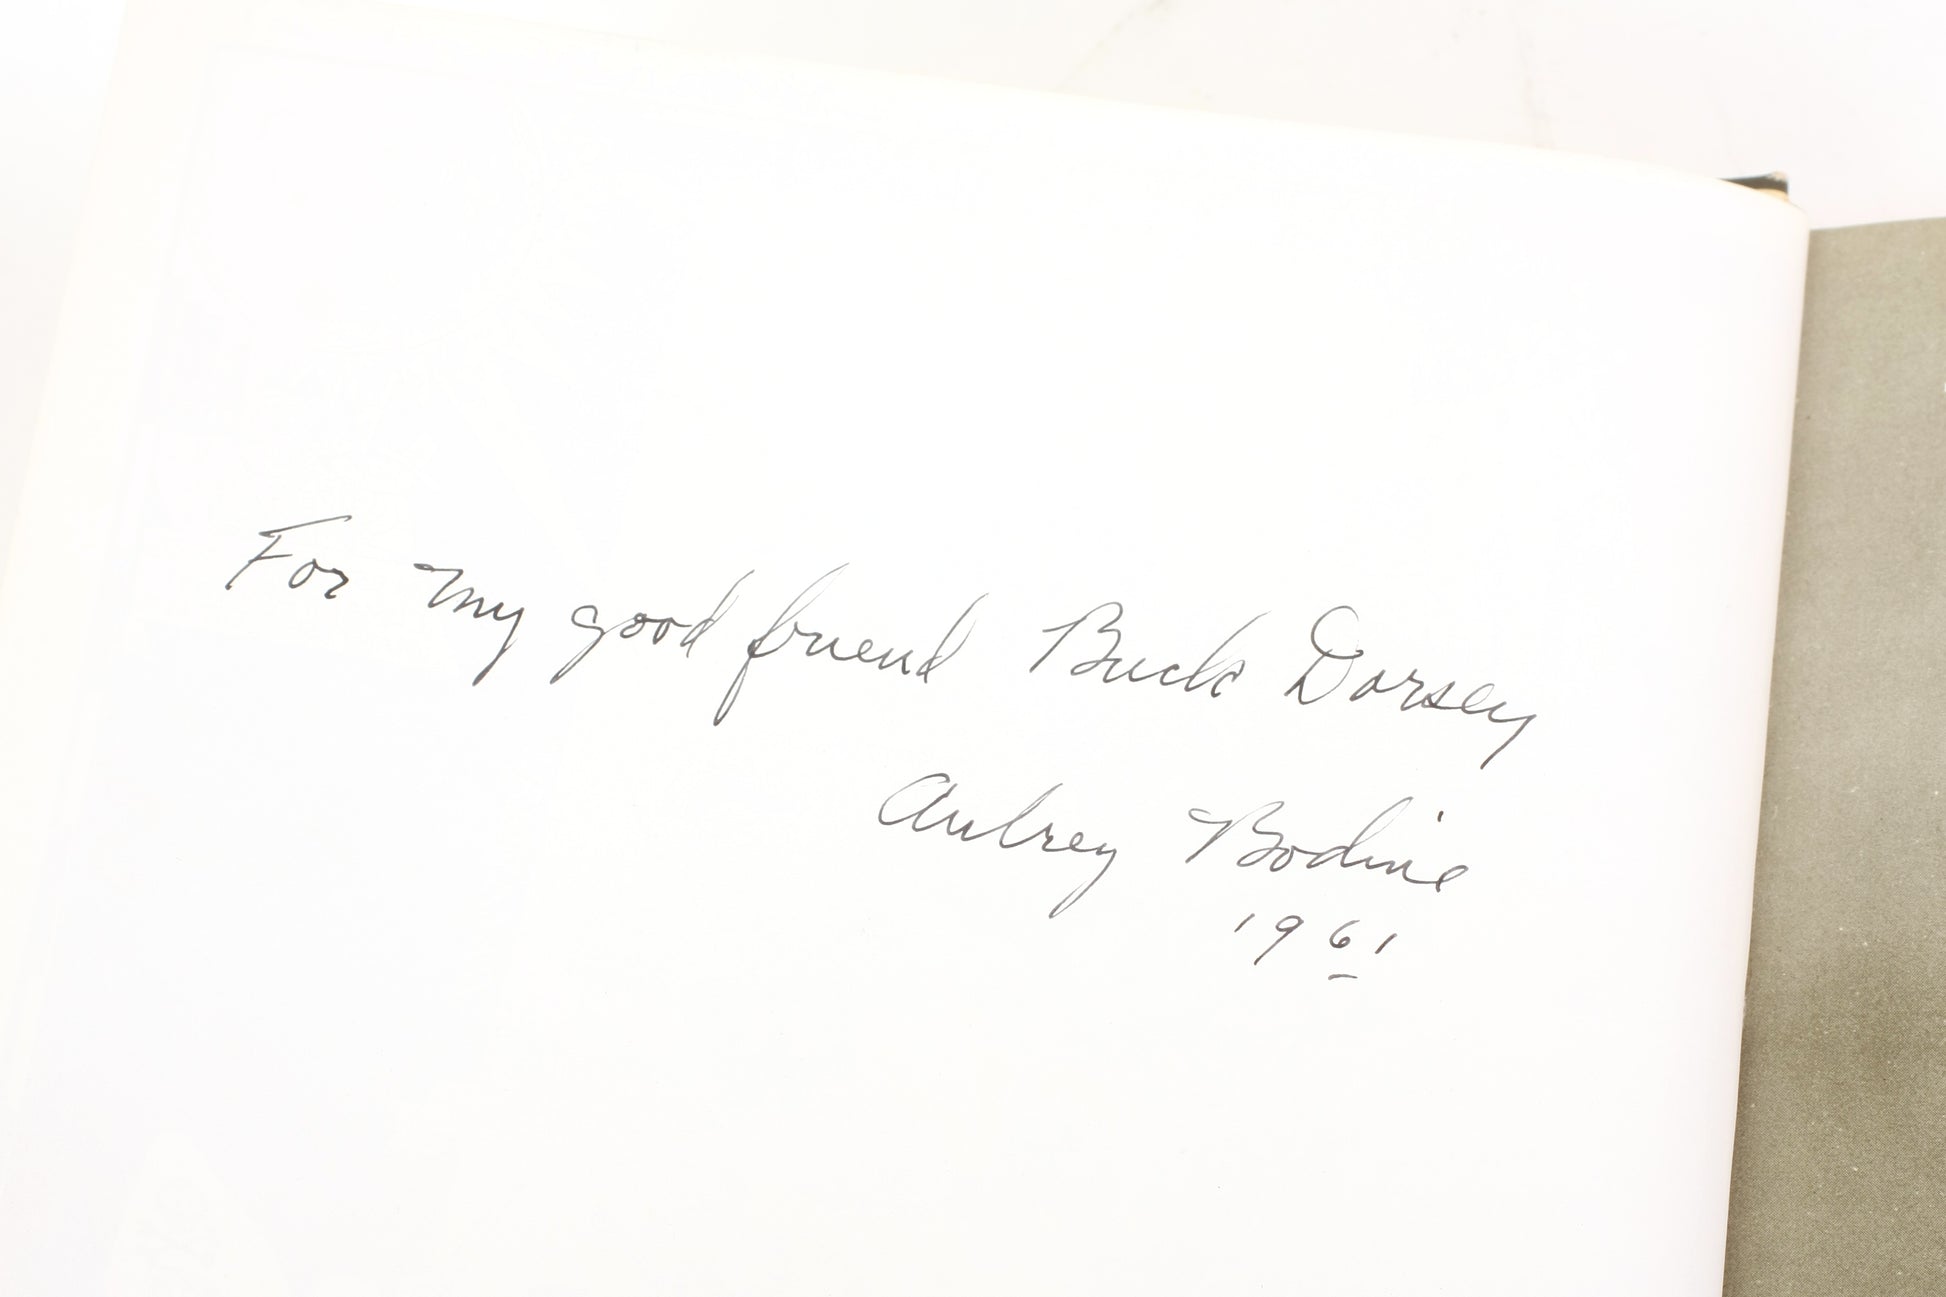 For my good friend Buck Dorsey
Aubrey Bodine
1961